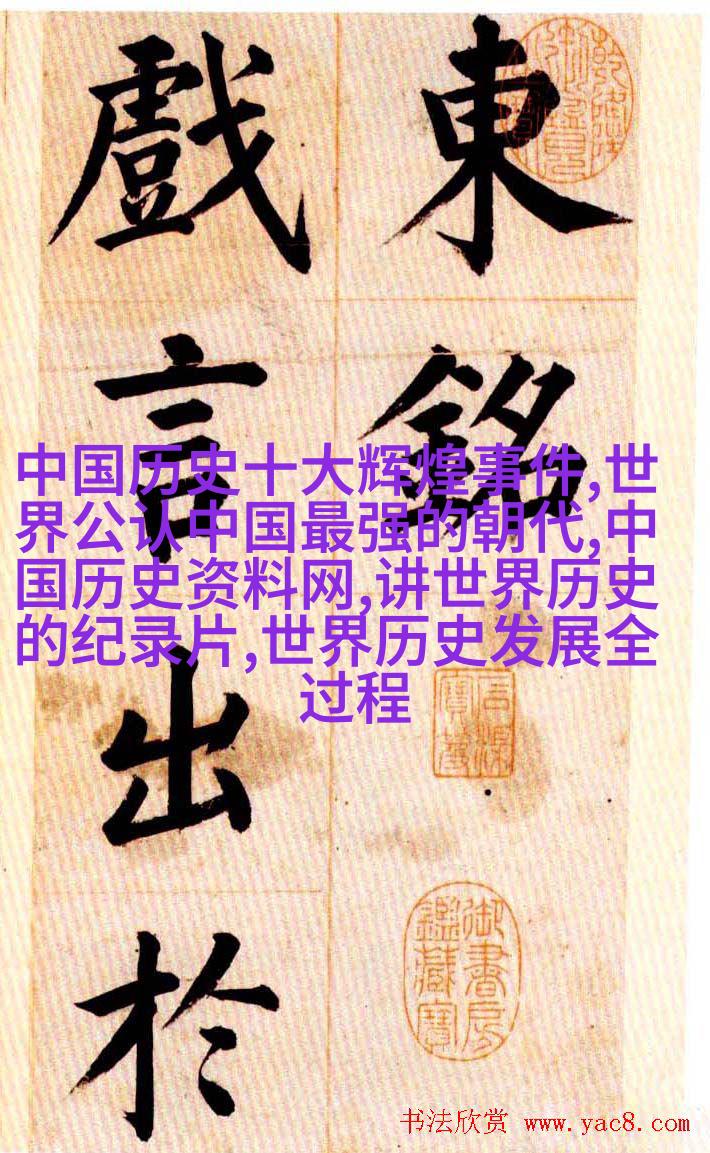 東銘
戲言出於
中国历史十大辉煌事件,世
界公认中国最强的朝代,中
国历史资料网,讲世界历史
的纪录片,世界历史发展全
过程
石渠寶笈
御書房鑑藏寶
书法欣赏 www.yac8.com